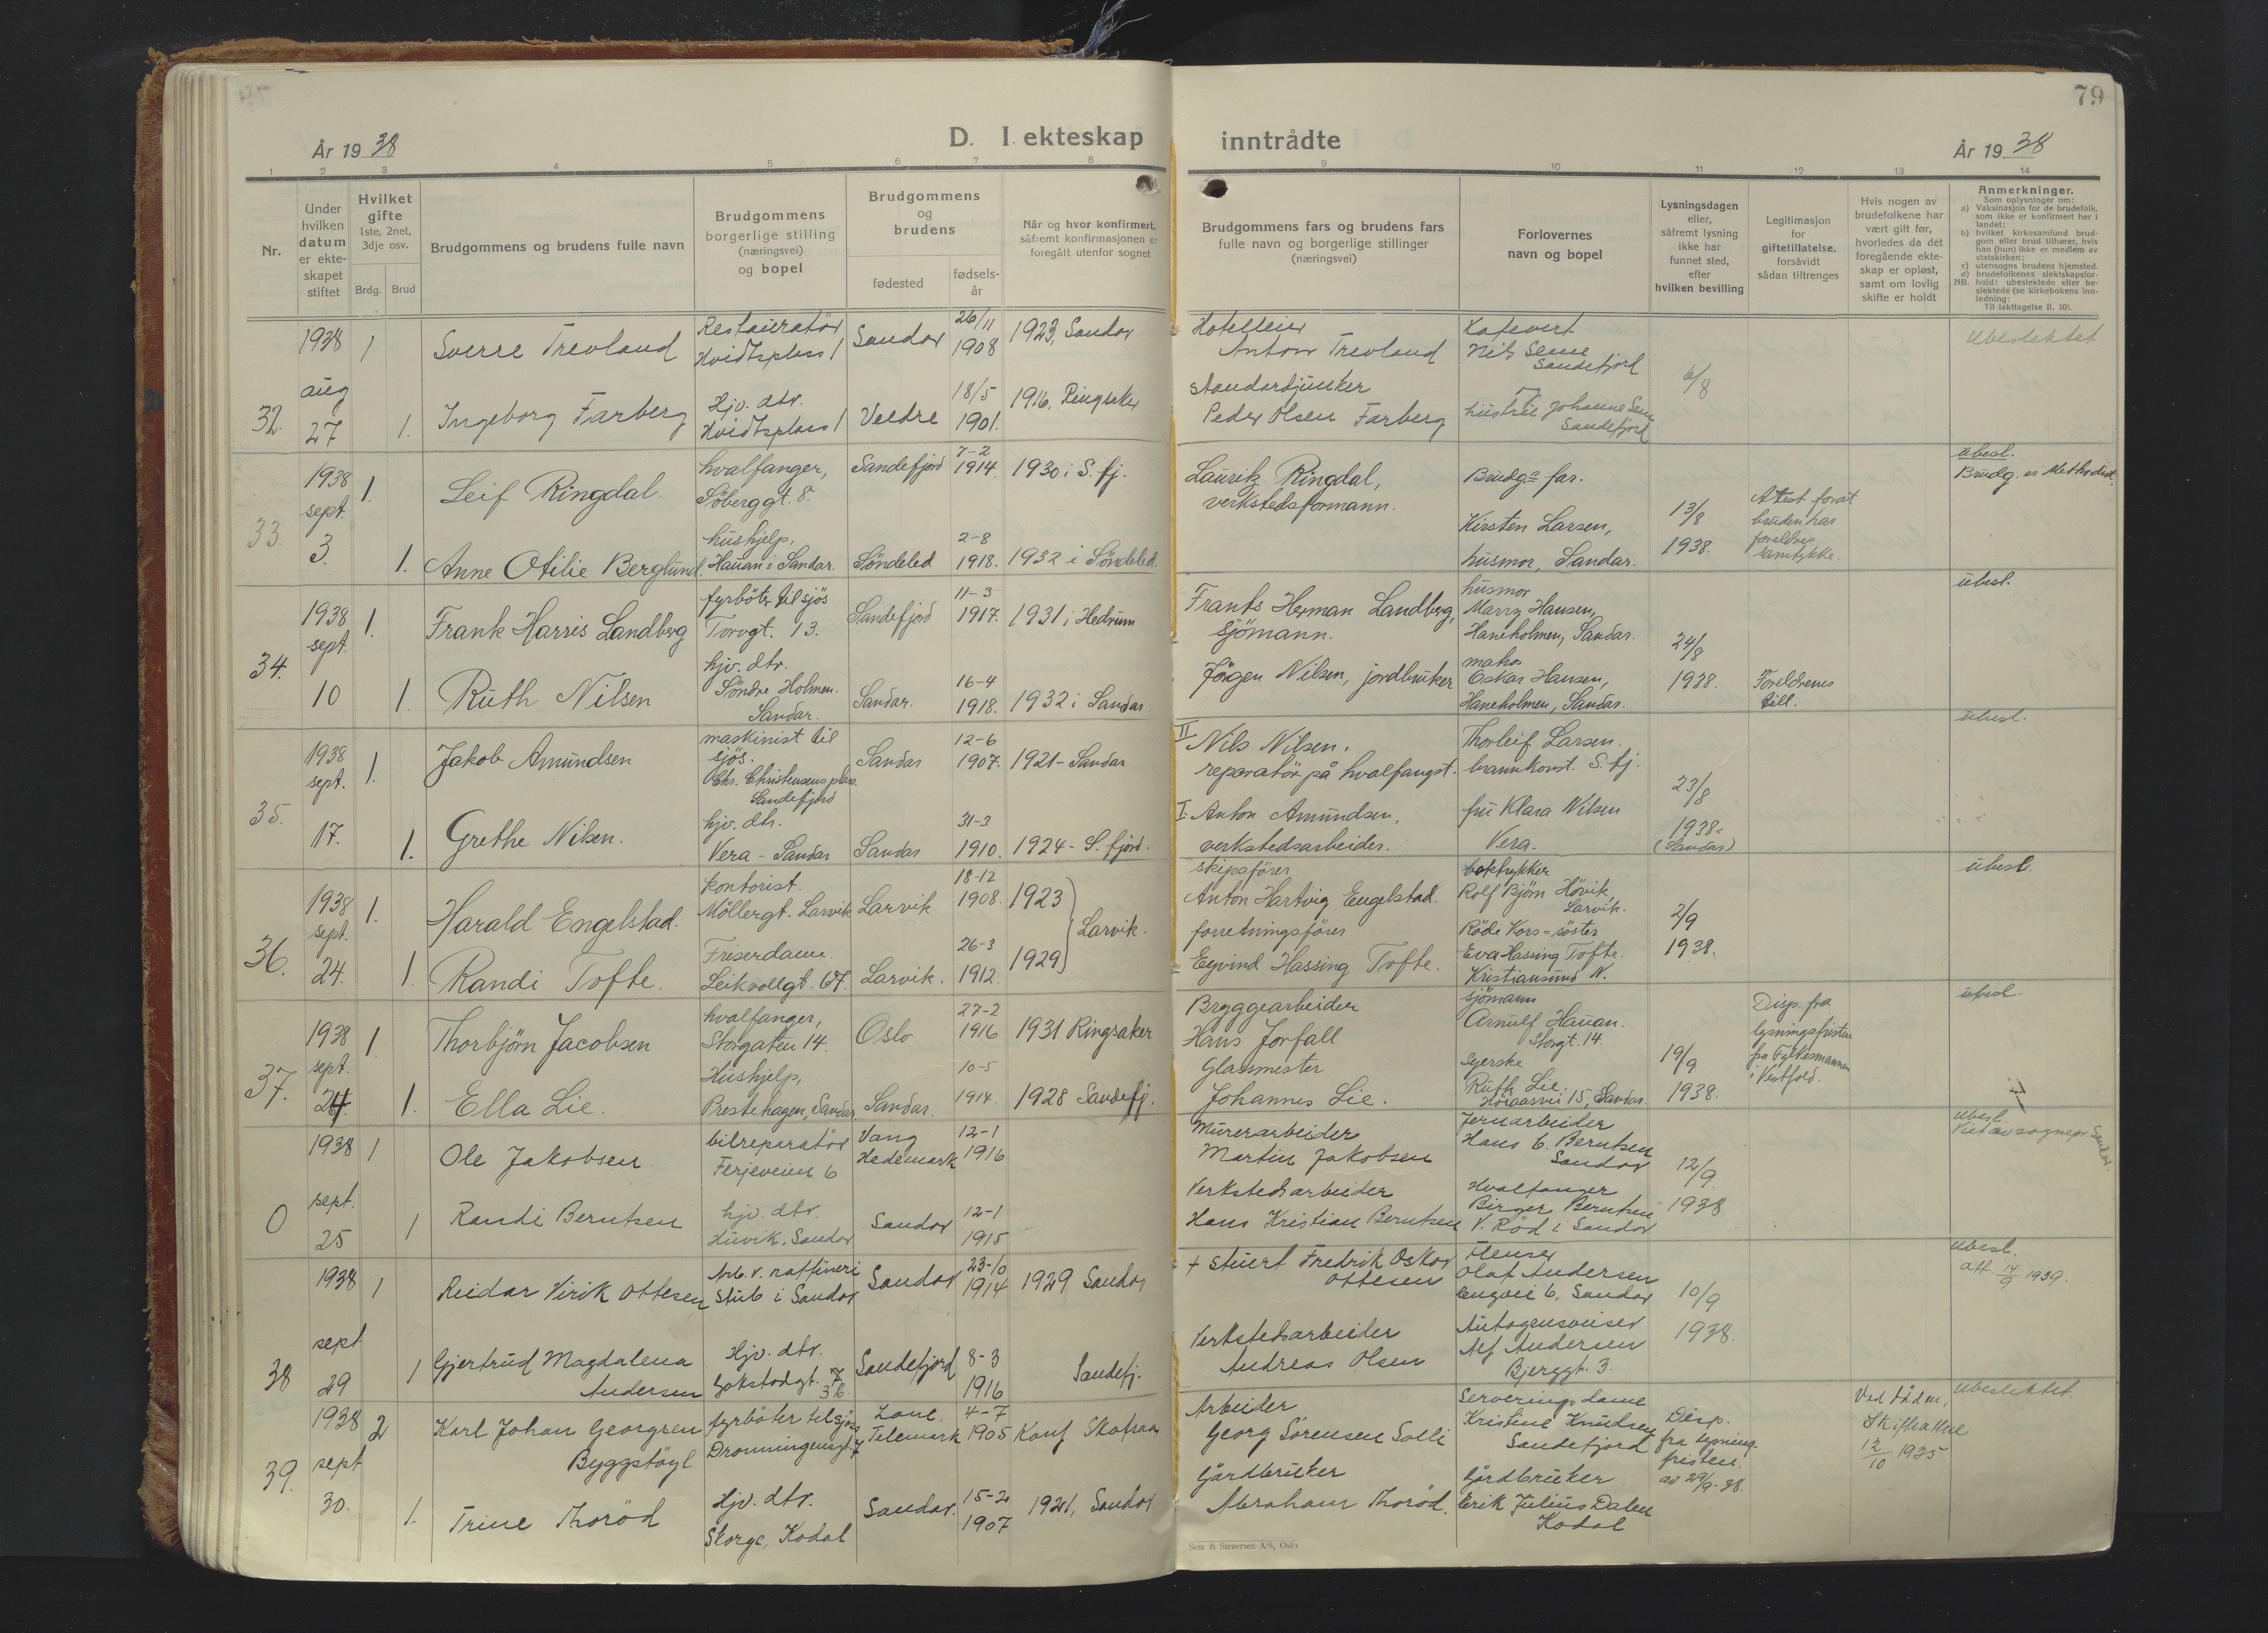 79
År 1938
D. I ekteskap inntrådte
År 1938
1 2 3 4 5 6 7 8 9 10 11 12 13 14
Nr.
Under hvilken datum er ekteskapet stiftet
Hvilket gifte 1ste, 2net, 3dje osv.
Brdg. Brud
Brudgommens og brudens fulle navn
Brudgommens borgerlige stilling (næringsvei) og bopel
Brudgommens og brudens
fødested
fødsels-år
Når og hvor konfirmert, såfremt konfirmasjonen er foregått utenfor sognet
Brudgommens fars og brudens fars fulle navn og borgerlige stillinger (næringsvei)
Forlovernes navn og bopel
Lysningsdagen eller, såfremt lysning ikke har funnet sted, efter hvilken bevilling
Legitimasjon for giftetillatelse, forsåvidt sådan tiltrenges
Hvis nogen av brudefolkene har vært gift før, hvorledes da det foregående ekteskap er opløst, samt om lovlig skifte er holdt
Anmerkninger.
Som oplysninger om:
a) Vaksinasjon for de brudefolk, som ikke er konfirmert her i landet;
b) hvilket kirkesamfund brudgom eller brud tilhører, hvis han (hun) ikke er medlem av statskirken;
c) utensogns brudens hjemsted.
d) brudefolkenes slektskapsforhold: ubeslektede eller beslektede (se kirkebokens innledning:
NB. Til iakttagelse II. 10).
32. 1938 aug 27
1 Sverre Trevland
Restauratör Hvidtsplass 1
Sandar 26/11 1908
1923, Sandar
Hotelleier Anton Trevland
Kafevert Nils Seme Sandefjord
6/8
Ubeslektet
1. Ingeborg Farberg
Hjv. dtr. Hvidtsplass 1
Veldre 18/5 1901.
1916, Ringsaker
Standartjunker Peder Olsen Farberg
hustru Johanne Seme Sandefjord
33. 1938 sept. 3.
1. Leif Ringdal.
hvalfanger, Söberggt. 8.
Sandefjord 7-2 1914
1930 i S. fj.
Lauritz Ringdal, verkstedsformann.
Brudgs far.
13/8 1938.
Attest forat bruden har foreldres samtykke.
ubesl. Brudg. er Methodist.
1. Anne Otilie Berglund.
hushjelp, Hauan i Sandar.
Söndeled 2-8 1918.
1932 i Söndeled.
Kirsten Larsen, husmor, Sandar.
34. 1938 sept. 10
1. Frank Harris Landberg
fyrböter til sjös Torvgt. 13.
Sandefjord 11-3 1917.
1931 i Hedrum
Frants Herman Landberg, sjömann.
husmor Marry Hansen, Haneholmen, Sandar.
24/8 1938.
Foreldrenes till.
ubesl.
1. Ruth Nilsen
hjv. dtr. Söndre Holmen. Sandar.
Sandar. 16-4 1918.
1932 i Sandar
Jörgen Nilsen, jordbruker
Oskar Hansen, Haneholmen, Sandar.
35. 1938 sept. 17.
1. Jakob Amundsen
maskinist til sjös. Chr. Christensens plass. Sandefjord
Sandar 12-6 1907.
1921 - Sandar
II Nils Nilsen. reparatör på hvalfangst.
Thorleif Larsen. brannkonst. S. fj.
23/8 1938. (Sandar)
ubesl.
1. Grethe Nilsen.
hjv. dtr. Vera - Sandar
Sandar 31-3 1910.
1924 - S. fjord.
I Anton Amundsen, verkstedsarbeider.
fru Klara Nilsen Vera.
36. 1938 sept. 24.
1. Harald Engelstad.
kontorist. Möllergt. Larvik
Larvik 18-12 1908.
1923 Larvik.
skipsförer Anton Hartvig Engelstad.
boktrykker Rolf Björn Hövik Larvik.
2/9 1938.
ubesl.
1. Randi Tofte.
Friserdame. Leikvollgt. 67.
Larvik. 26-3 1912.
1929
forretningsförer Eyvind Hassing Tofte.
Röde Kors-söster Eva Hassing Tofte. Kristiansund N.
37. 1938 sept. 24.
1. Thorbjörn Jacobsen
hvalfanger, Storgaten 14.
Oslo 27-2 1916
1931 Ringsaker
Bryggearbeider Hans Jorfall
sjömann Arnulf Hauan. Storgt. 14.
19/9 1938.
Disp. fra lysningsfristen fra Fylkesmannen i Vestfold.
ubesl.
1. Ella Lie.
Hushjelp, Prestehagen, Sandar
Sandar. 10-5 1914.
1928 Sandefj.
Glassmester Johannes Lie.
Syerske Ruth Lie, 15, Sandar.
0 1938 sept. 25
1 Ole Jakobsen
bilreparatör Ferjeveien 6
Vang Hedemark 12-1 1916
Murerarbeider Martin Jakobsen
Jernarbeider Hans C. Berntsen Sandar
12/9. 1938
ubesl. Viet av sognepr. Sandar.
1 Randi Berntsen
hjv. dtr. Huvik, Sandar
Sandar 12-1 1915
Verkstedsarbeider Hans Kristian Berntsen
Hvalfanger Birger Berntsen V. Röd i Sandar
38 1938 sept 29
1 Reidar Virik Ottesen
Arb. v. raffineri Stub i Sandar
Sandar 23-10 1914
1929 Sandar
+ Stuert Fredrik Oskar Ottesen
Flenser Olaf Andersen Engvei 6, Sandar
10/9 1938.
ubesl. att. 14/9 1939.
1 Gjertrud Magdalena Andersen
Hjv. dtr. Gokstadgt.
Sandefjord 8-3 1916
Sandefj.
Verkstedsarbeider Andreas Olsen
Autogensveiser Alf Andersen Bjerggt. 3.
39. 1938 sept 30.
2 Karl Johan Georgsen Byggstöyl
fyrböter til sjös Dronningensgt. 7
Telemark 4-7 1905
Konf Skafsaa
Arbeider Georg Sörensen Solli
Serveringsdame Kristine Knudsen Sandefjord
Disp. fra lysningfristen. av 29/9-38.
Ved döden, Skifteattest 12/10 1935
Ubeslektet.
1. Trine Thoröd
Hjv. dtr. Skorge, Kodal
Sandar. 15-2 1907
1921, Sandar
Gårdbruker Abraham Thoröd.
Gårdbruker Erik Julius Dalen Kodal
Sem & Stenersen A/S, Oslo